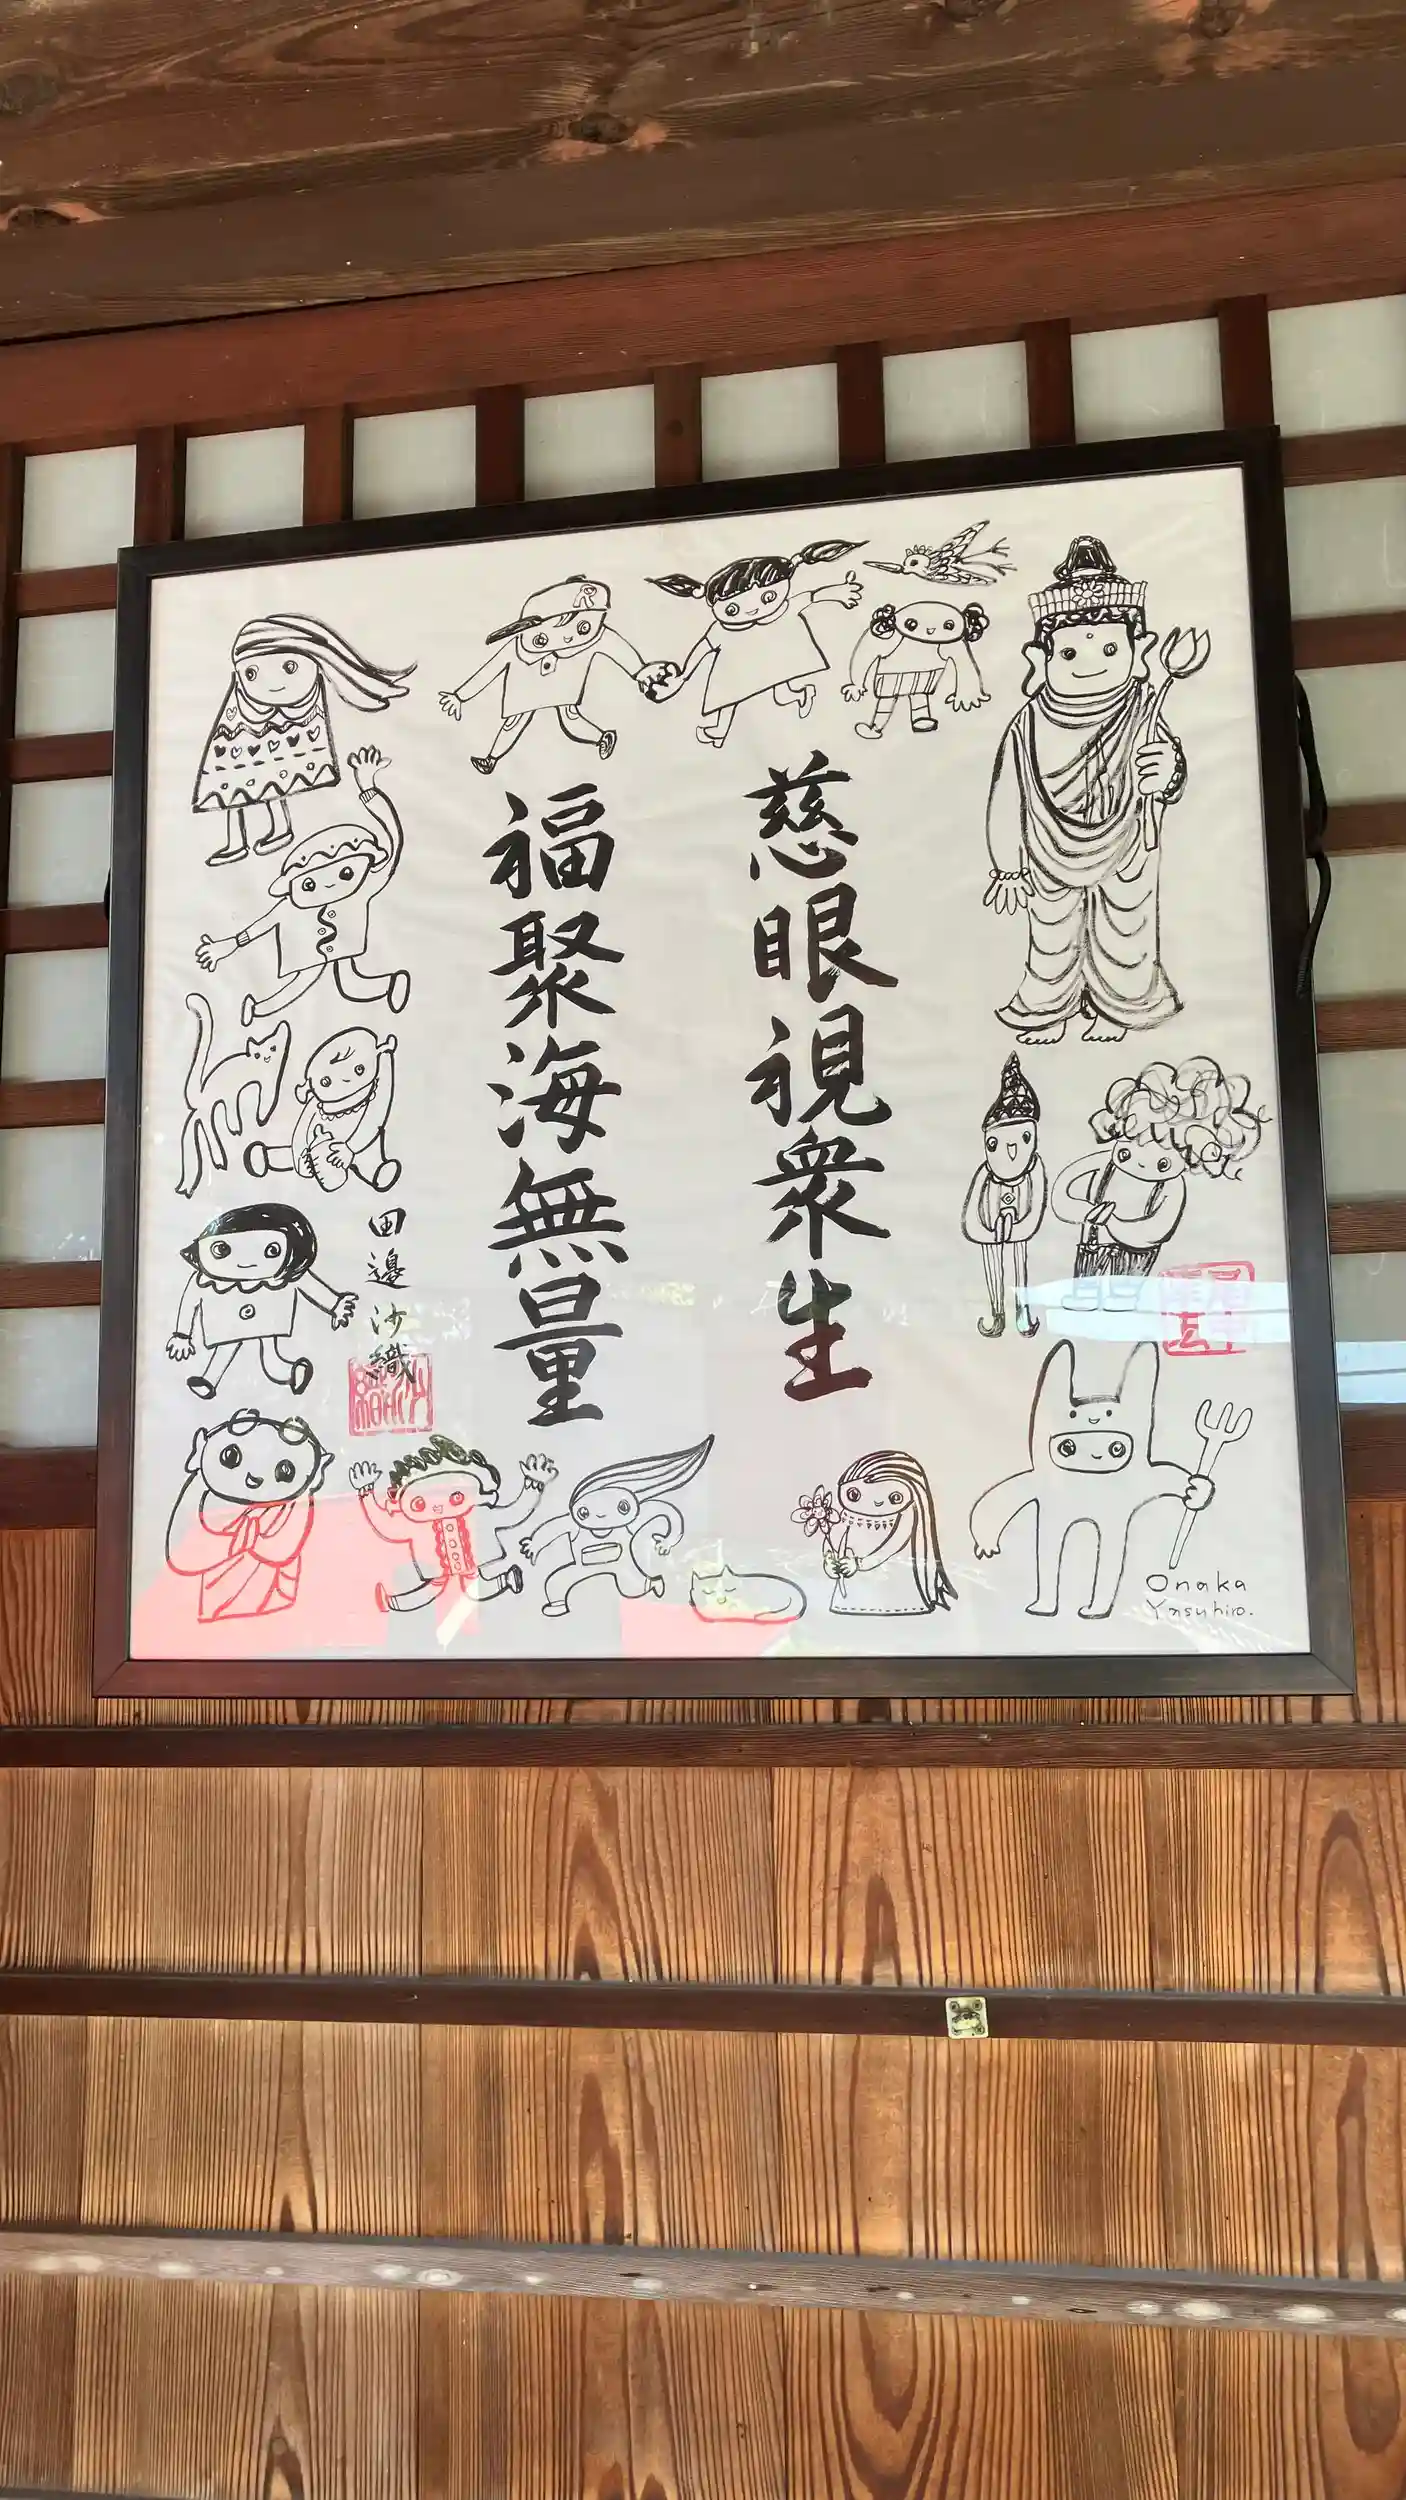 慈眼視衆生
福聚海無量
田邉沙織
Onaka
Yasuhiro.